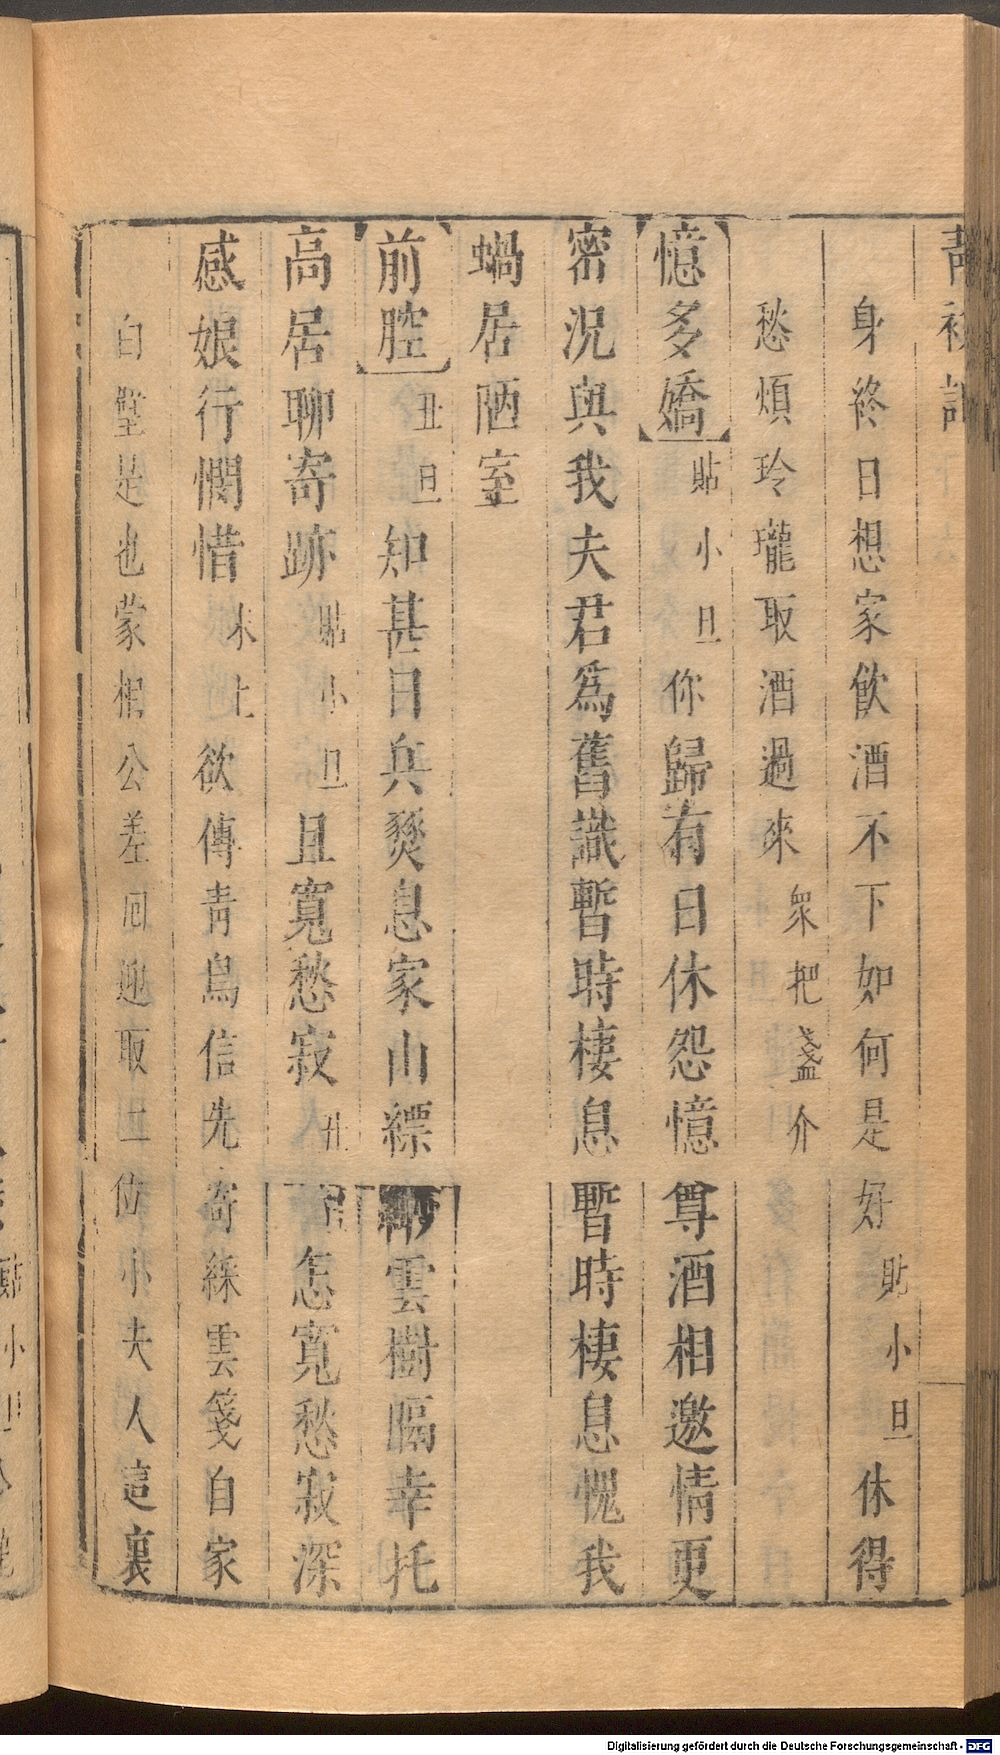 身終日想家飲酒不下如何是好貼小旦休得
愁煩玲瓏取酒過來衆把盞介
憶多嬌貼小旦你歸有日休怨憶尊酒相邀情更
密況與我夫君爲舊識暫時棲息暫時棲息愧我
蝸居陋室
前腔丑旦知甚日兵燹息家山縹緲雲樹隔幸托
高居聊寄跡貼小旦且寬愁寂丑旦怎寬愁寂深
感娘行憫惜末上欲傳青鳥信先寄綵雲箋自家
白望是也蒙相公差回迎取二位小夫人這裏
Digitalisierung gefördert durch die Deutsche Forschungsgemeinschaft - DFG